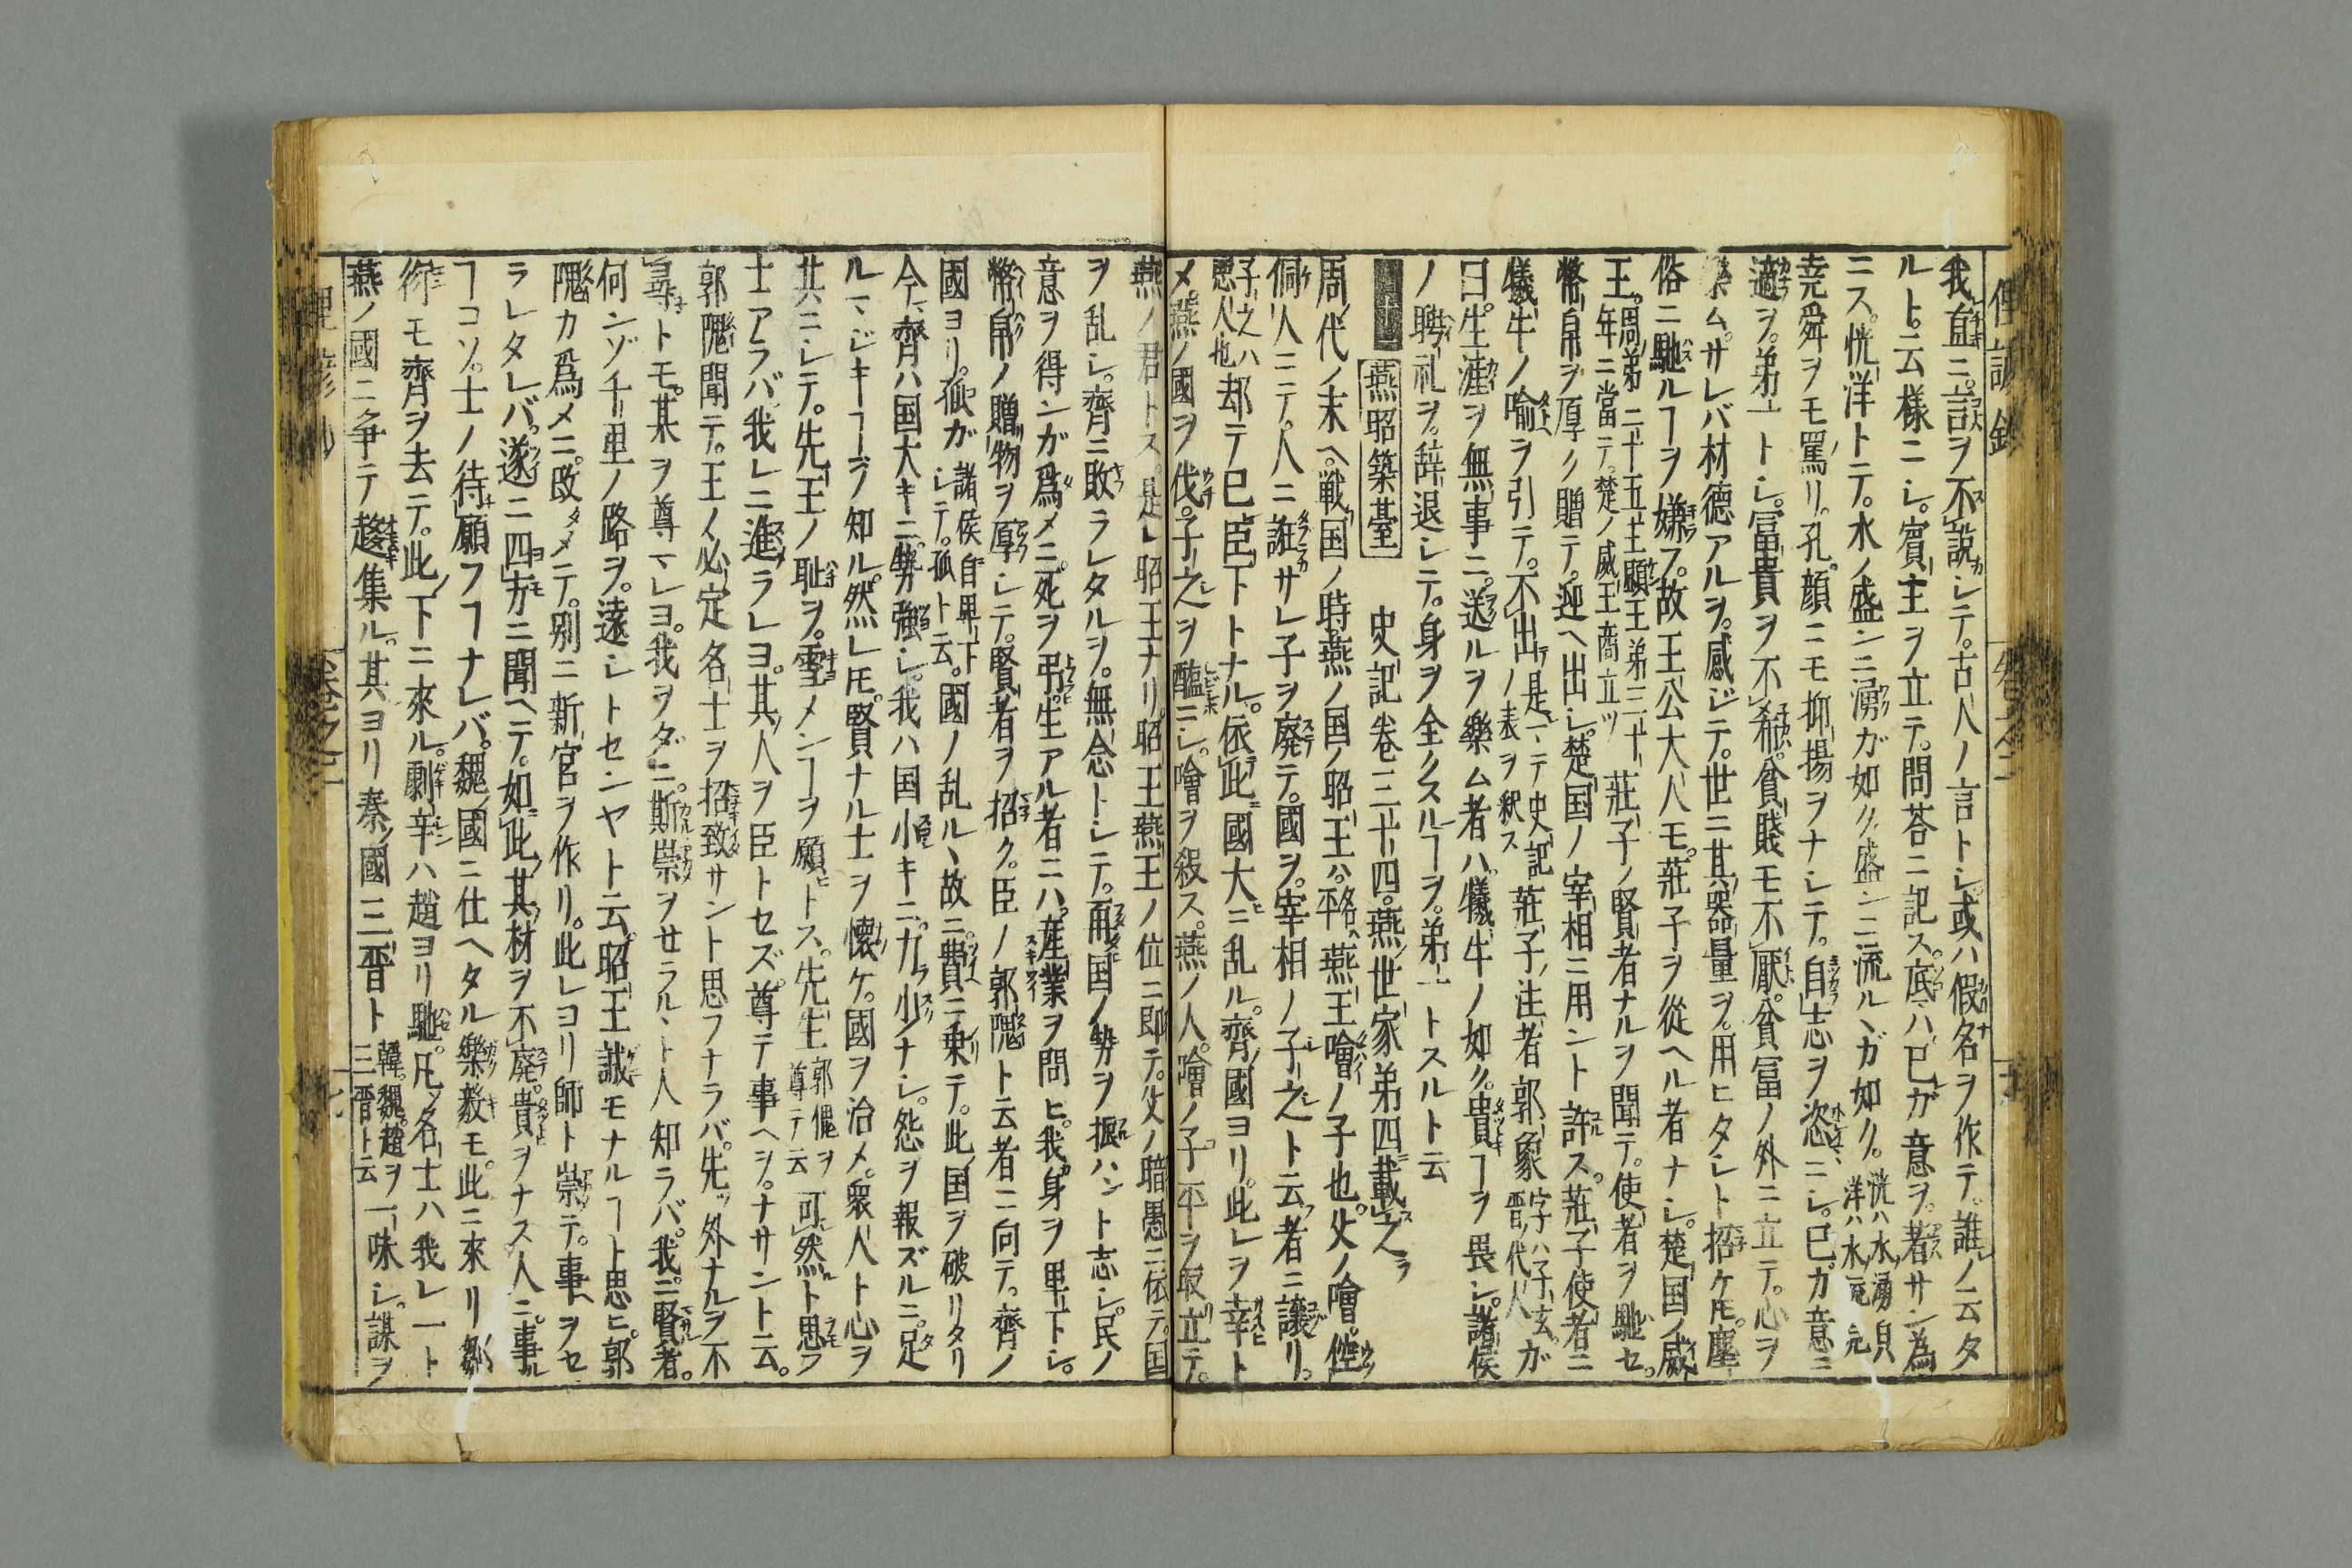 俚諺鈔
我直ニ言ヲ不説シテ。古人ノ言トシ或ハ假名ヲ作テ。誰ノ云タ
ルト。云様ニシ。賓主ヲ立テ。問荅ニ記ス。底ハ己ガ意ヲ。著サン為
ニス。恍洋トテ。水ノ盛ンニ湧ガ如ク。盛ンニ流ルヽガ如ク。恍ハ水湧皃洋ハ水
尭舜ヲモ罵リ。孔顔ニモ抑揚ヲナシテ。自志ヲ恣ニシ。己ガ意ニ
適ヲ。弟一トシ。冨貴ヲ不希。貧賤モ不厭。貧冨ノ外ニ立テ。心ヲ
樂ム。サレバ材德アルヲ。感ジテ。世ニ其器量ヲ。用ヒタシト招ケ𪜈。塵
俗ニ馳ルヿヲ嫌フ。故王公大人モ。莊子ヲ從ヘル者ナシ。楚国ノ威
王。周弟二十五主顕王弟三十年ニ當テ。楚ノ威王商立ツ莊子ノ賢者ナルヲ聞テ。使者ヲ馳セ。
幣帛ヲ厚ク贈テ。迎ヘ出シ。楚国ノ宰相ニ用ント許ス。莊子使者ニ
犠牛ノ喩ヲ引テ。不出是マテ史記ノ表ヲ釈ス莊子注者郭象字ハ子玄。晋ノ代人ガ
曰。生涯ヲ無事ニ。送ルヲ樂ム者ハ。犠牛ノ如ク。貴ヿヲ畏シ。諸侯
ノ聘礼ヲ。辞退シテ。身ヲ全クスルヿヲ。弟一トスルト云
燕昭築臺 史記巻三十四。燕世家弟四載之
周代ノ末ヘ。戦国ノ時燕ノ国ノ昭王ハ。平名燕王噲ノ子也。父ノ噲。倥
侗人ニテ。人ニ誑サレ子ヲ廃テ。國ヲ。宰相ノ子之ト云者ニ讓リ。
子之ハ悪人也却テ已臣下トナル。依此國大ニ乱ル。齊國ヨリ。此レヲ幸ト
メ。燕ノ國ヲ伐。子之ヲ醢ニシ。噲ヲ殺ス。燕ノ人。噲ノ子平ヲ取立テ。
燕ノ君トス。是レ昭王ナリ。昭王燕王ノ位ニ即テ。父ノ暗愚ニ依テ。国
ヲ乱シ。齊ニ敗ラレタルヲ。無念トシテ。再国ノ勢ヲ振ハント志シ。民ノ
意ヲ得ンガ爲メニ。死ヲ弔。生アル者ニハ。産業ヲ問ヒ。我身ヲ卑下シ。
幣帛ノ贈物ヲ厚シテ。賢者ヲ招ク。臣ノ郭隗ト云者ニ向テ。齊ノ
國ヨリ。孤ガ諸侯自卑下シテ。孤ト云。國ノ乱ルヽ故ニ。費ニ乗テ。此国ヲ破リタリ
今齊ハ国大キニ。勢強シ。我ハ国小キニ。力ラ小ナシ。怨ヲ報ズルニ。足
ルマジキヿヲ知ル。然レ𪜈。賢ナル士ヲ懐ケ。國ヲ治メ。衆人ト心ヲ
共ニシテ。先王ノ耻ヲ。雪メンヿヲ願トス。先生郭隗ヲ尊テ云可然ト思フ
士アラバ我レニ進ラレヨ。其人ヲ臣トセズ。尊テ事ヘヲ。ナサント云。
郭隗聞テ。王ノ必定名士ヲ招致サント思フナラバ。先ッ外ナルヲ不
尋トモ。某ヲ尊マレヨ。我ヲダニ。斯崇ヲサラルヽト人知ラバ。我ニ賢者。
何ンゾ千里ノ路ヲ。遠シトセンヤト云。昭王誠モナルヿト思ヒ。郭
隗カ爲メニ。改メテ。別ニ新官ヲ作リ。此レヨリ師ト崇テ。事ヲセ
ラレタレバ。遂ニ四方ニ聞ヘテ。如此其材ヲ不廃。貴ヲナス人ニ。事ル
ヿコソ。士ノ待願フヿナレバ。魏國ニ仕ヘタル樂毅モ。此ニ來リ鄒
衍モ齊ヲ去テ。此下ニ來ル。劇辛ハ趙ヨリ馳。凡名士ハ我レ一ト
燕ノ國ニ争テ趨集ル。其ヨリ秦國三晋ト韓。魏。趙ヲ三晋ト云一味シ。謀ヲ
俚諺鈔